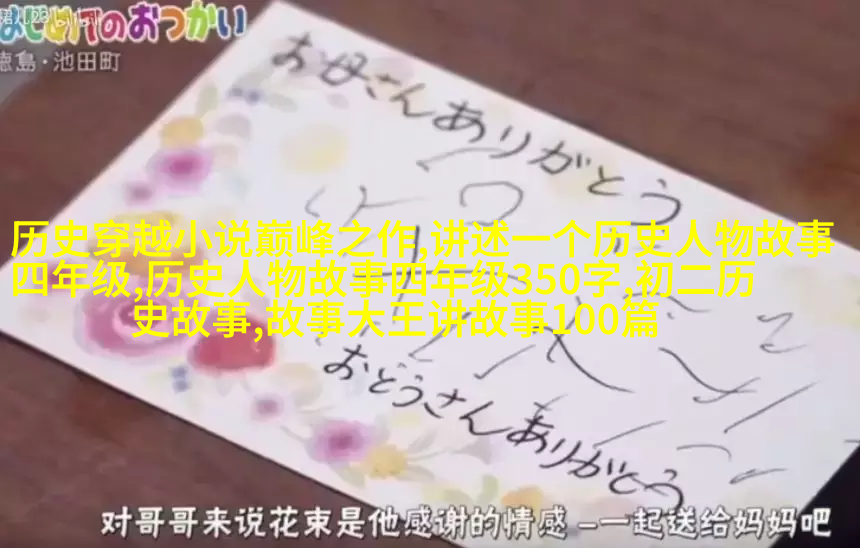 はじめてのおつかい
徳島・池田町
お母さんありがとう
历史穿越小说巅峰之作,讲述一个历史人物故事
四年级,历史人物故事四年级350字,初二历
史故事,故事大王讲故事100篇
おとうさんありがとう
对哥哥来说花束是他感谢的情感 –一起送给妈妈吧